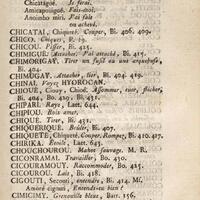 Chicatágoé. Je ferai.
Amicapouigué. Fais-moi.
Anoinho miri. J'ai fait
ou achevé.
CHICATAI, Chiquété. Couper, Bi. 406. 409.
CHICO. Chiquer, R. 19.
CHICOU. Pisser, Bi. 425.
CHIMIGUÉ. Attacher; J'ai attaché, Bi. 417.
CHIMORIGAY. Tirer un fusil ou une arquebuse,
Bi. 404.
CHIMUGAY. Attacher, lier, Bi. 404. 419.
CHINAI. Voyez HYOROCAN.
CHIOUÉ, Ciouy, Chioé. Assommer, tuer, flécher,
Bi. 404, Bo. 419, Bi. 431.
CHIPARI. Raye; Laet. 644.
CHIPIOU. Bois amer,
CHIQUÉ. Tirer, Bi. 431.
CHIQUERIQUÉ. Brider, Bi. 407.
CHIQUETÉ, Chiqueté. Couper, Rompre, Bi. 410. 427.
CHIRIKA. Étoile, Laet. 643.
CHOUCHOUROU. Mahot sauvage. M. R.
CICONRAMAI. Travailler, Bo. 430.
CICOURAMOUY. Raccommoder, Bo. 425.
CICOUROU. Lait, Bi. 418.
CICOUTI, Secouti, entendre, Bi. 414. Mi,
Amoré cignuti, Entends-tu bien?
CIMICIMY. Grenouille bleue, Barr. 156.